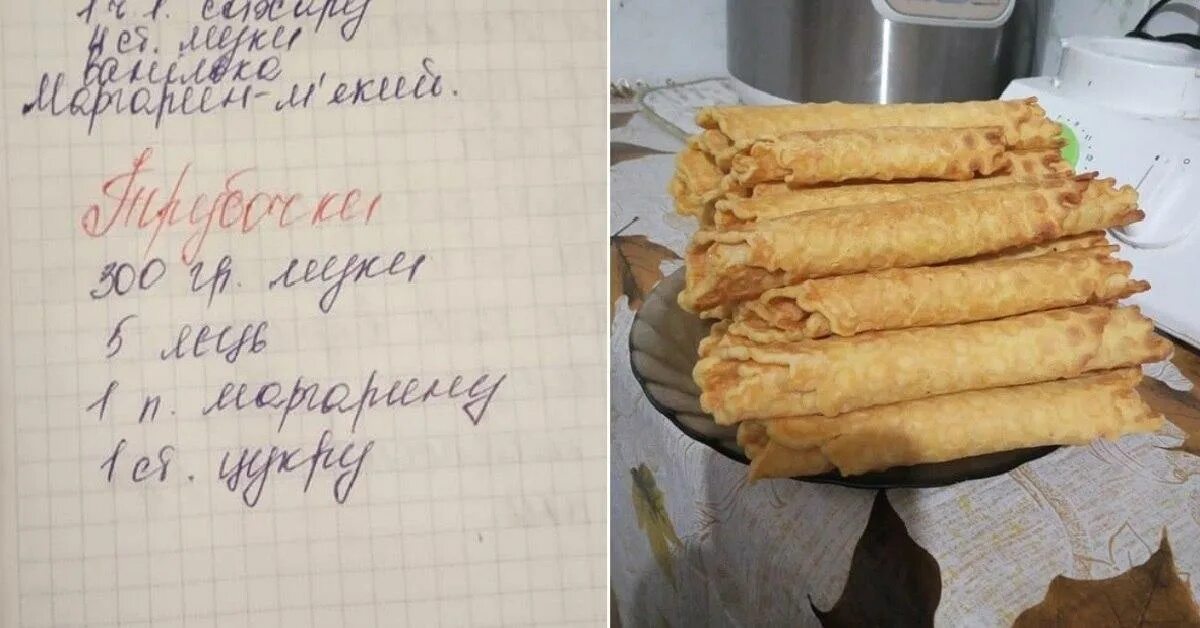 1 ч. л.
4 ст. муки
Ванілька
Маргарин-м'який.
Трубочки
300 гр. муки
5 яєць
1 п. маргарину
1 ст. цукру